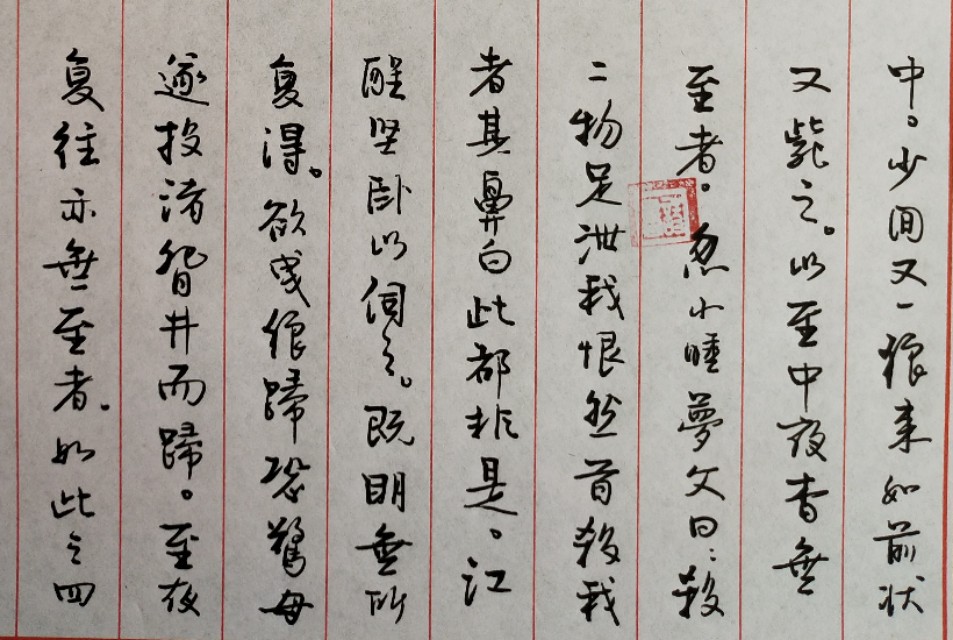 中。少间又一狼来如前状
又毙之。以至中夜杳無
至者。忽小睡夢父曰:殺
二物足泄我恨然首殺我
者其鼻白此都非是。江
醒坚卧以伺之。既明無所
复得。欲曳狼歸恐驚母
遂投诸眢井而歸。至夜
复往亦無至者。如此三四